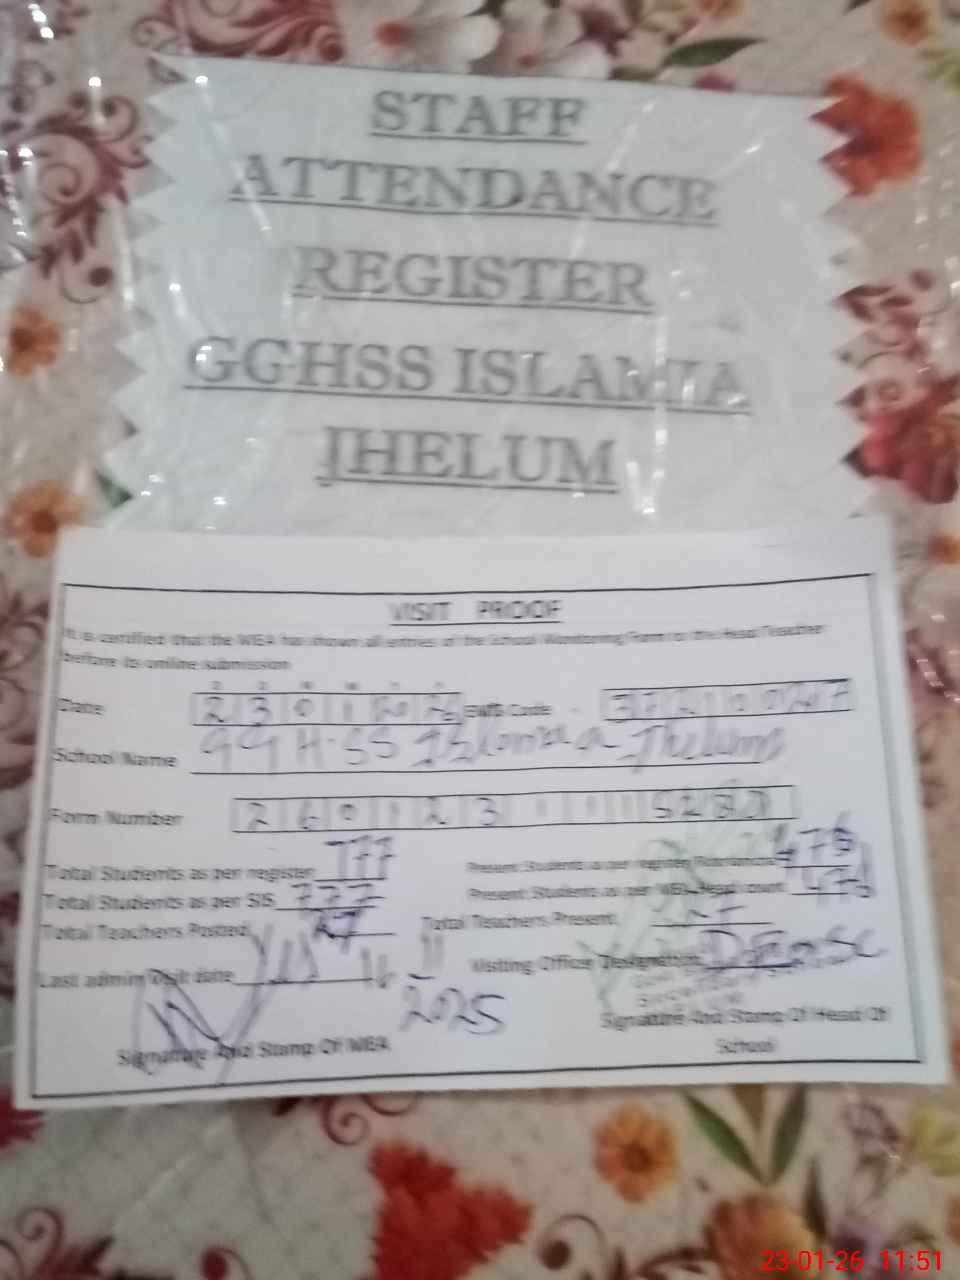 STAFF
ATTENDANCE
REGISTER
GGHSS ISLAMIA
JHELUM
VISIT PROOF
It is certified that the MEA has shown all entries of the School Monitoring Form to the Head Teacher
before its online submission
Date 23012026 EMIS Code - 372
School Name GGHSS Islamia Jhelum
Form Number 260123
Total Students as per register 777 Present Students as per register
Total Students as per SIS 777 Present Students as per MEA Head count 476
Total Teachers Posted 27 Total Teachers Present 27
Last admin Visit date 11 2025 Visiting Officer Designation
Signature And Stamp Of MEA
Signature And Stamp Of Head Of
School
23-01-26 11:51